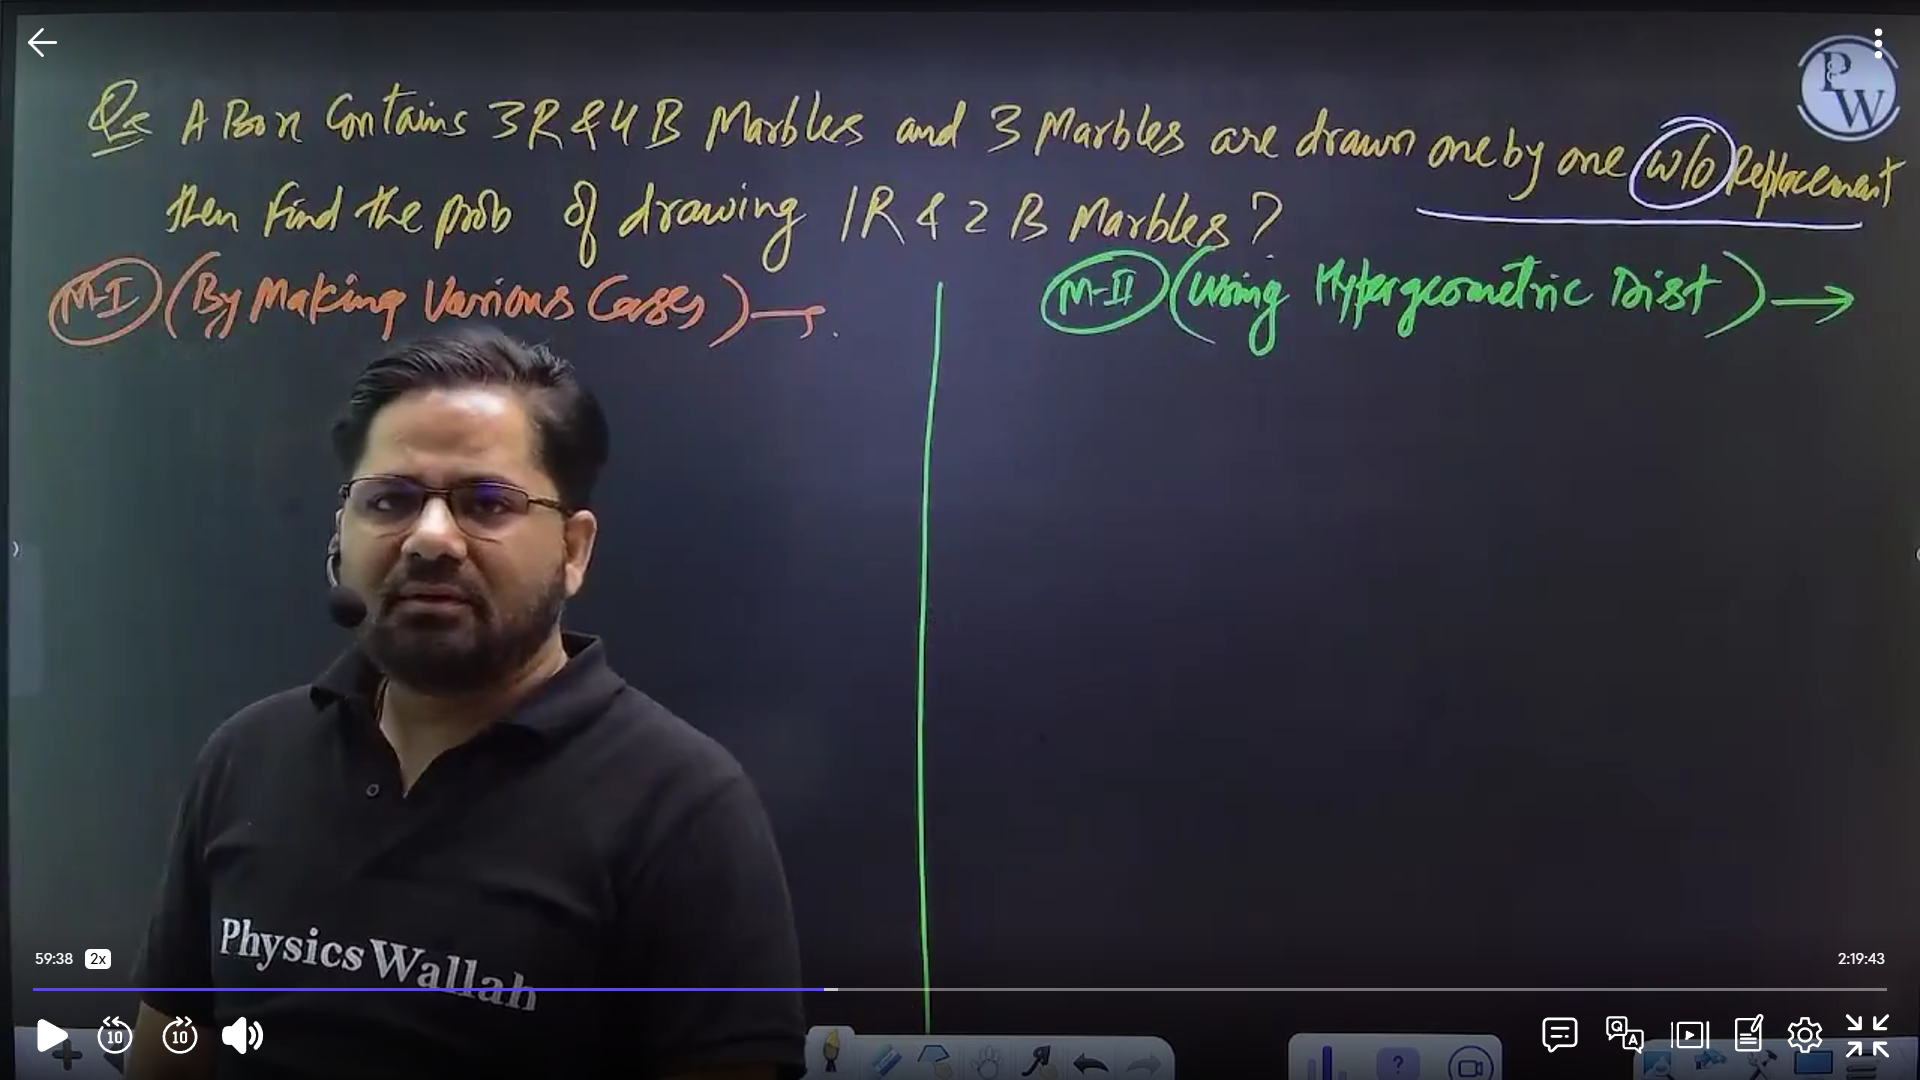 Qs A Box Contains 3R & 4B Marbles and 3 Marbles are drawn one by one w/o Replacement
then find the prob of drawing 1R & 2B Marbles?
M-I (By Making Various Cases) →
M-II (Using Hypergeometric Dist) →
PW
Physics Wallah
59:38 2x
2:19:43
10 10
Q A
?